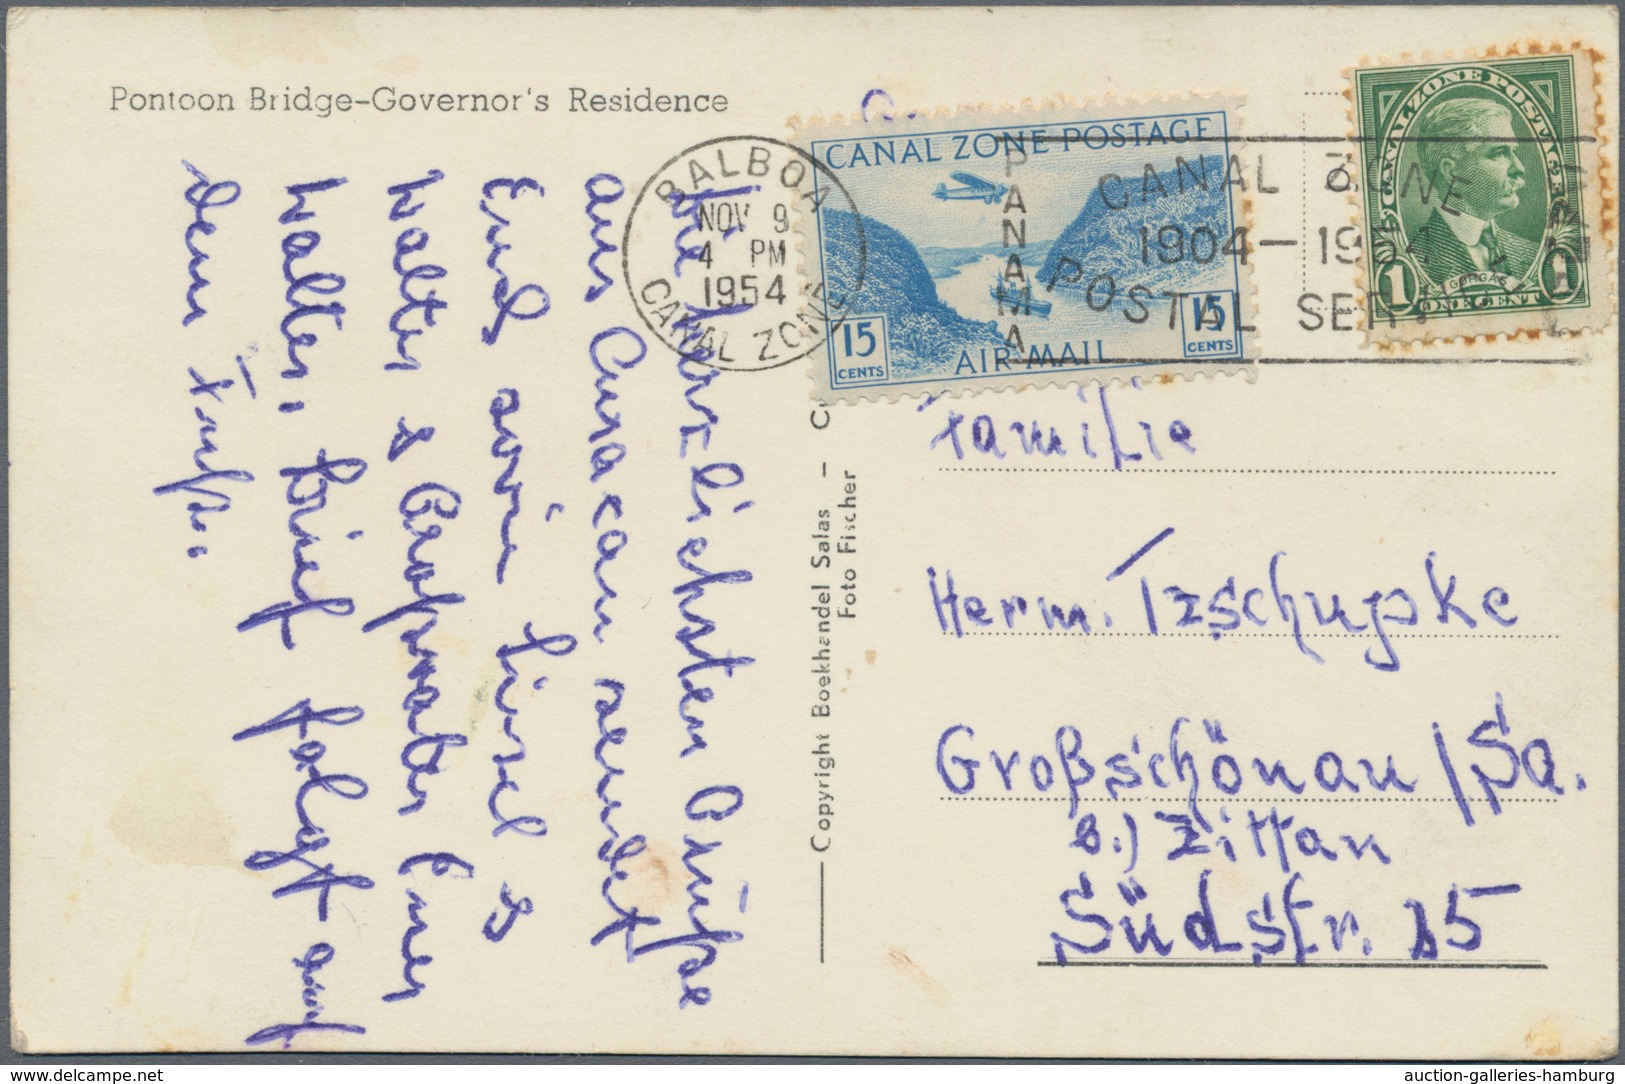 Pontoon Bridge-Governor's Residence
BALBOA
NOV 9
4 PM
1954
CANAL ZONE
CANAL ZONE POSTAGE
15
CENTS
AIR MAIL
15
CENTS
PANAMA
CANAL ZONE
1904-1954
POSTAL SERVICE
CANAL ZONE POSTAGE
GORGAS
1
ONE CENT
Die herzlichsten Grüße
aus Curacau sendet
Euch sowie Liesel &
Walter & Großvater Euer
Walter, Brief folgt auf
dem Fuße..
Copyright Boekhandel Salas - Cu
Foto Fischer
Familie
Herm. Tzschupke
Großschönau / Sa.
b.) Zittau
Südstr. 15
delcampe.net
auction-galleries-hamburg